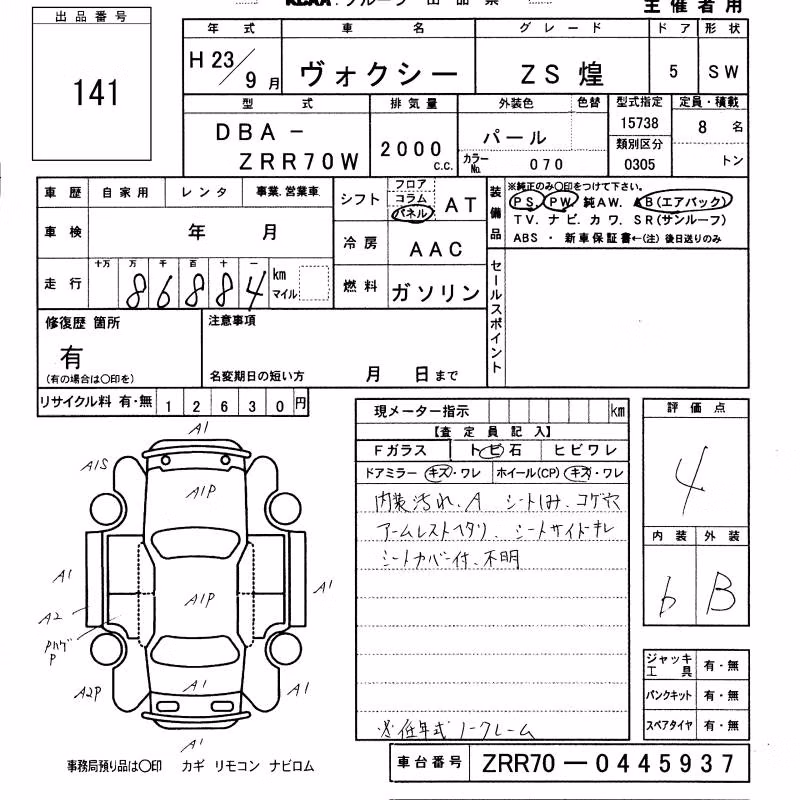 主催者用
出品番号
141
年式 車名 グレード ドア 形状
H23/9月 ヴォクシー ZS 煌 5 SW
型式 排気量 外装色 色替 型式指定 定員・積載
DBA-
ZRR70W
2000 c.c.
パール
カラーNo. 070
15738
類別区分
0305
8 名
トン
車歴 自家用 レンタ 事業.営業車
車検 年 月
走行 十万 万 千 百 十 一
86884 km
マイル
シフト フロア
コラム
パネル
AT
冷房 AAC
燃料 ガソリン
装備品
※純正のみ○印をつけて下さい。
PS. PW. 純AW. AB(エアバック)
TV. ナビ. カワ. SR(サンルーフ)
ABS ・ 新車保証書←(注) 後日送りのみ
セールスポイント
修復歴 箇所
有
(有の場合は○印を)
注意事項
名変期日の短い方 月 日まで
リサイクル料 有・無 12630円
現メーター指示 km
【査定員記入】
Fガラス トビ石 ヒビワレ
ドアミラー キズ・ワレ ホイール(CP) キズ・ワレ
内装汚れ、A シートしみ、コゲ穴
アームレストヘタリ、シートサイドキレ
シートカバー付、不明
※低年式ノークレーム
評価点
4
内装 外装
b B
ジャッキ
工具
有・無
パンクキット 有・無
スペアタイヤ 有・無
A1
A1S
A1P
A1
A1P
A1
A2
Pハゲ
P
A2P
A1
A1
A1
事務局預り品は○印 カギ リモコン ナビロム
車台番号 ZRR70-0445937